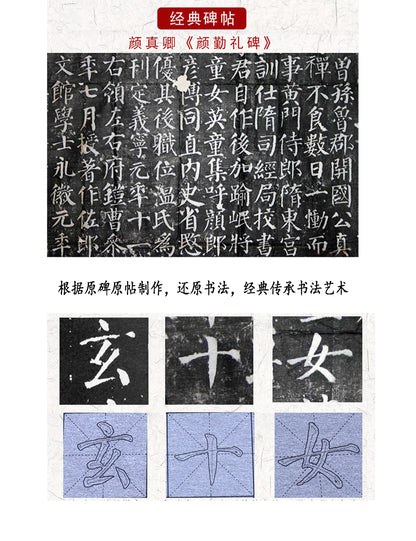 经典碑帖
颜真卿《颜勤礼碑》
曾孫魯郡開國公真
禪不良數日一慟而
事黄門侍郎隋東宮
訓仕隋司經局校書
君自作後加踰岷將
童女英童集呼顔郎
彦博同直内史省愍
優其後職位温氏爲
刊定義寧元年十一
右領左右府鎧曹叅
年七月授著作佐郎
文館學士永徽元年
根据原碑原帖制作，还原书法，经典传承书法艺术
玄 十 女
玄 十 女